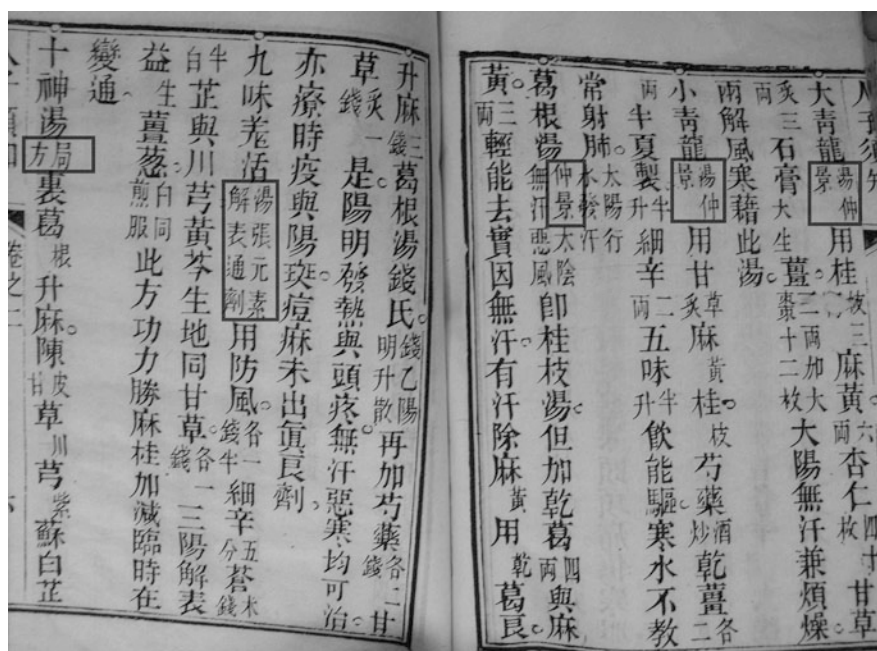 大青龍湯仲景用桂枝三兩麻黃六兩杏仁四十枚甘草
炙三兩石膏大生薑二兩加大棗十二枚大陽無汗兼煩燥。
兩解風寒藉此湯。
小青龍湯仲景用甘草炙麻黃桂枝芍藥酒炒乾薑各二
兩半夏製半升細辛二兩五味半升飲能驅寒水不教
常射肺。太陽行水發汗
葛根湯仲景太陰無汗惡風卽桂枝湯。但加乾葛四兩與麻
黃。三兩輕能去實因無汗。有汗除麻黃用乾葛良。
升麻三錢葛根湯錢氏。錢乙陽明升散再加芍藥各二錢甘
草炙一錢是。陽明發熱與頭疼。無汗惡寒均可治。
亦療時疫與陽斑。痘麻未出眞良劑。
九味羌活湯張元素解表通劑用防風。各一錢半細辛五分蒼朮錢
半白芷與川芎黃芩生地同甘草。各一錢三陽解表
益生薑蔥。白同煎服此方功力勝麻桂加減臨時在
變通。
十神湯局方裏葛根升麻。陳皮甘草川芎紫蘇白芷